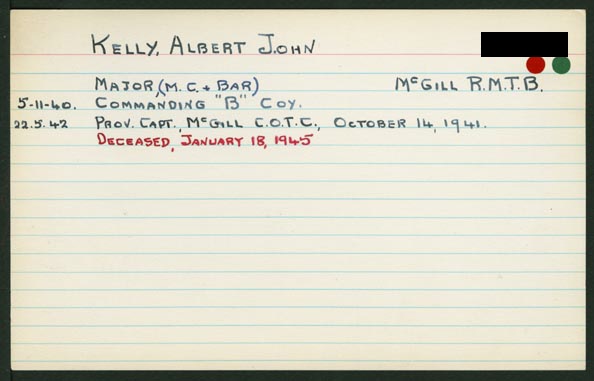 KELLY, ALBERT JOHN
MAJOR, (M.C. + BAR) McGILL R.M.T.B.
5-11-40. COMMANDING "B" COY.
22.5.42 PROV. CAPT., McGILL C.O.T.C., OCTOBER 14, 1941.
DECEASED, JANUARY 18, 1945